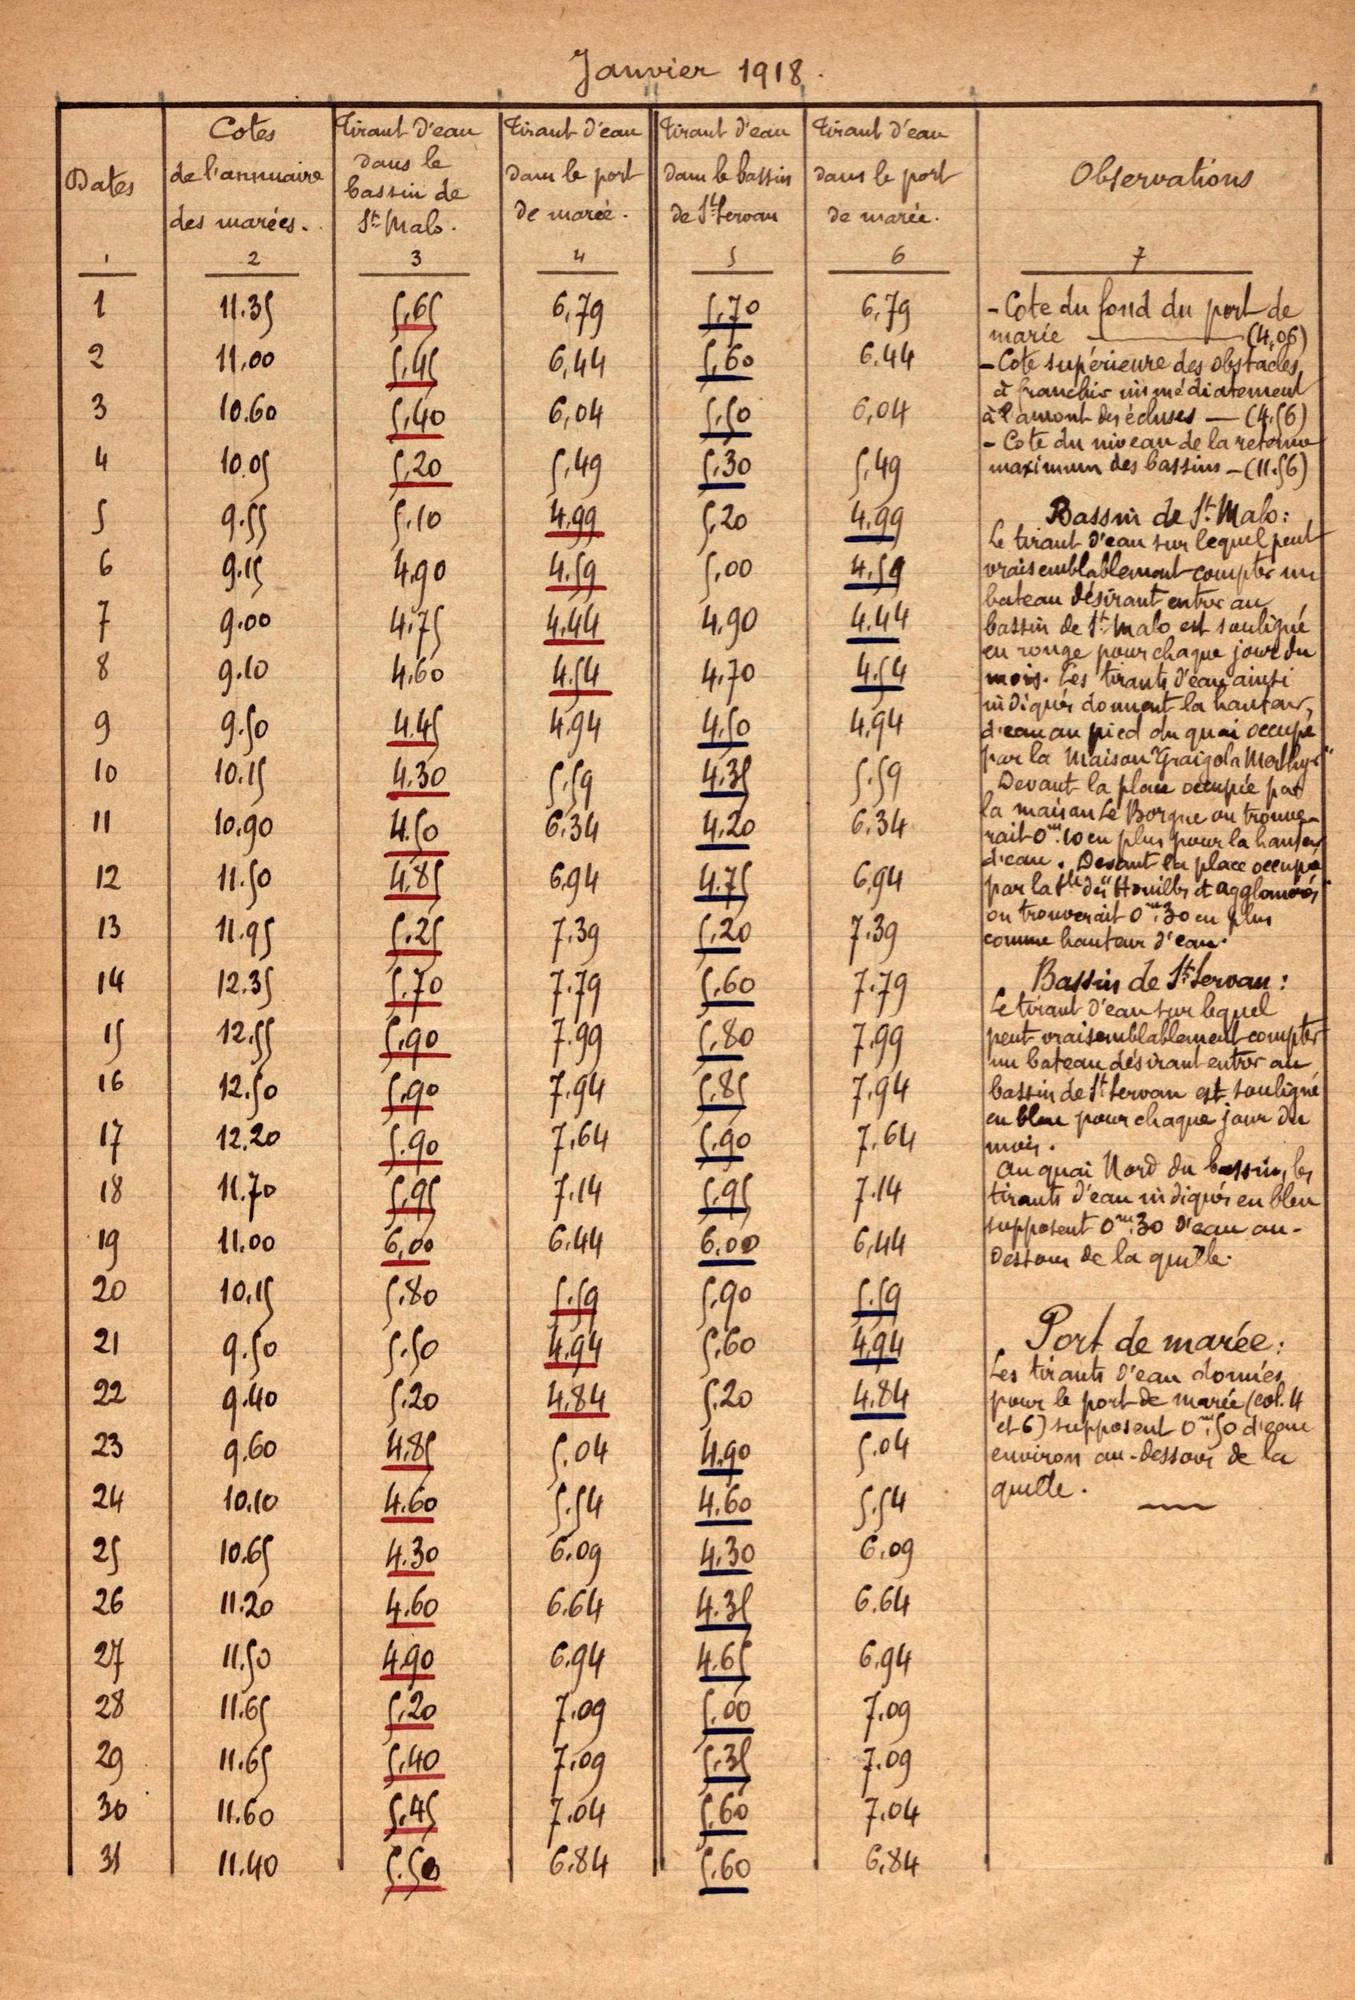 Janvier 1918.
Dates
Cotes
de l'annuaire
des marées.
Tirant d'eau
dans le
bassin de
St Malo.
Tirant d'eau
dans le port
de marée.
Tirant d'eau
dans le bassin
de St Servan
Tirant d'eau
dans le port
de marée.
Observations
1 2 3 4 5 6 7
1 11.35 5,65 6,79 5,70 6,79
2 11,00 5,45 6,44 5,60 6.44
3 10.60 5,40 6,04 5,50 6,04
4 10.05 5,20 5,49 5,30 5,49
5 9.55 5,10 4.99 5,20 4.99
6 9.15 4.90 4.59 5,00 4.59
7 9.00 4.75 4.44 4.90 4.44
8 9.10 4.60 4.54 4.70 4.54
9 9.50 4.45 4.94 4.50 4.94
10 10.15 4.30 5.59 4.35 5.59
11 10.90 4.50 6.34 4.20 6.34
12 11.50 4.85 6.94 4.75 6,94
13 11.95 5.25 7.39 5.20 7.39
14 12.35 5.70 7.79 5.60 7.79
15 12.55 5.90 7.99 5.80 7.99
16 12.50 5.90 7.94 5.85 7.94
17 12.20 5.90 7.64 5.90 7.64
18 11.70 5.95 7.14 5.95 7.14
19 11.00 6,00 6.44 6.00 6,44
20 10.15 5.80 5.59 5.90 5.59
21 9.50 5.50 4.94 5.60 4.94
22 9.40 5.20 4.84 5.20 4.84
23 9.60 4.85 5.04 4.90 5.04
24 10.10 4.60 5.54 4.60 5.54
25 10.65 4.30 6.09 4.30 6.09
26 11.20 4.60 6.64 4.35 6.64
27 11.50 4.90 6.94 4.65 6.94
28 11.65 5.20 7.09 5.00 7.09
29 11.65 5.40 7.09 5.35 7.09
30 11.60 5.45 7.04 5.60 7.04
31 11.40 5.50 6.84 5.60 6.84
- Cote du fond du port de
marée — (4,06)
- Cote supérieure des obstacles
à franchir immédiatement
à l'amont des écluses — (4.56)
- Cote du niveau de la retenue
maximum des bassins - (11.56)
Bassin de St. Malo:
Le tirant d'eau sur lequel peut
vraisemblablement compter un
bateau désirant entrer au
bassin de St Malo est souligné
en rouge pour chaque jour du
mois. Les tirants d'eau ainsi
indiqués donnent la hauteur
d'eau au pied du quai occupé
par la Maison "Graigola Merthyr"
Devant la place occupée par
la maison Le Borgne on trouve-
rait 0m.10 en plus pour la hauteur
d'eau. Devant la place occupée
par la Sté des "Houilles et agglomérés"
on trouverait 0m.30 en plus
comme hauteur d'eau.
Bassin de St Servan:
Le tirant d'eau sur lequel
peut vraisemblablement compter
un bateau désirant entrer au
bassin de St Servan est souligné
en bleu pour chaque jour du
mois.
Au quai Nord du bassin, les
tirants d'eau indiqués en bleu
supposent 0m.30 d'eau au-
dessous de la quille.
Port de marée:
Les tirants d'eau donnés
pour le port de marée (col. 4
et 6) supposent 0m.50 d'eau
environ au-dessous de la
quille.